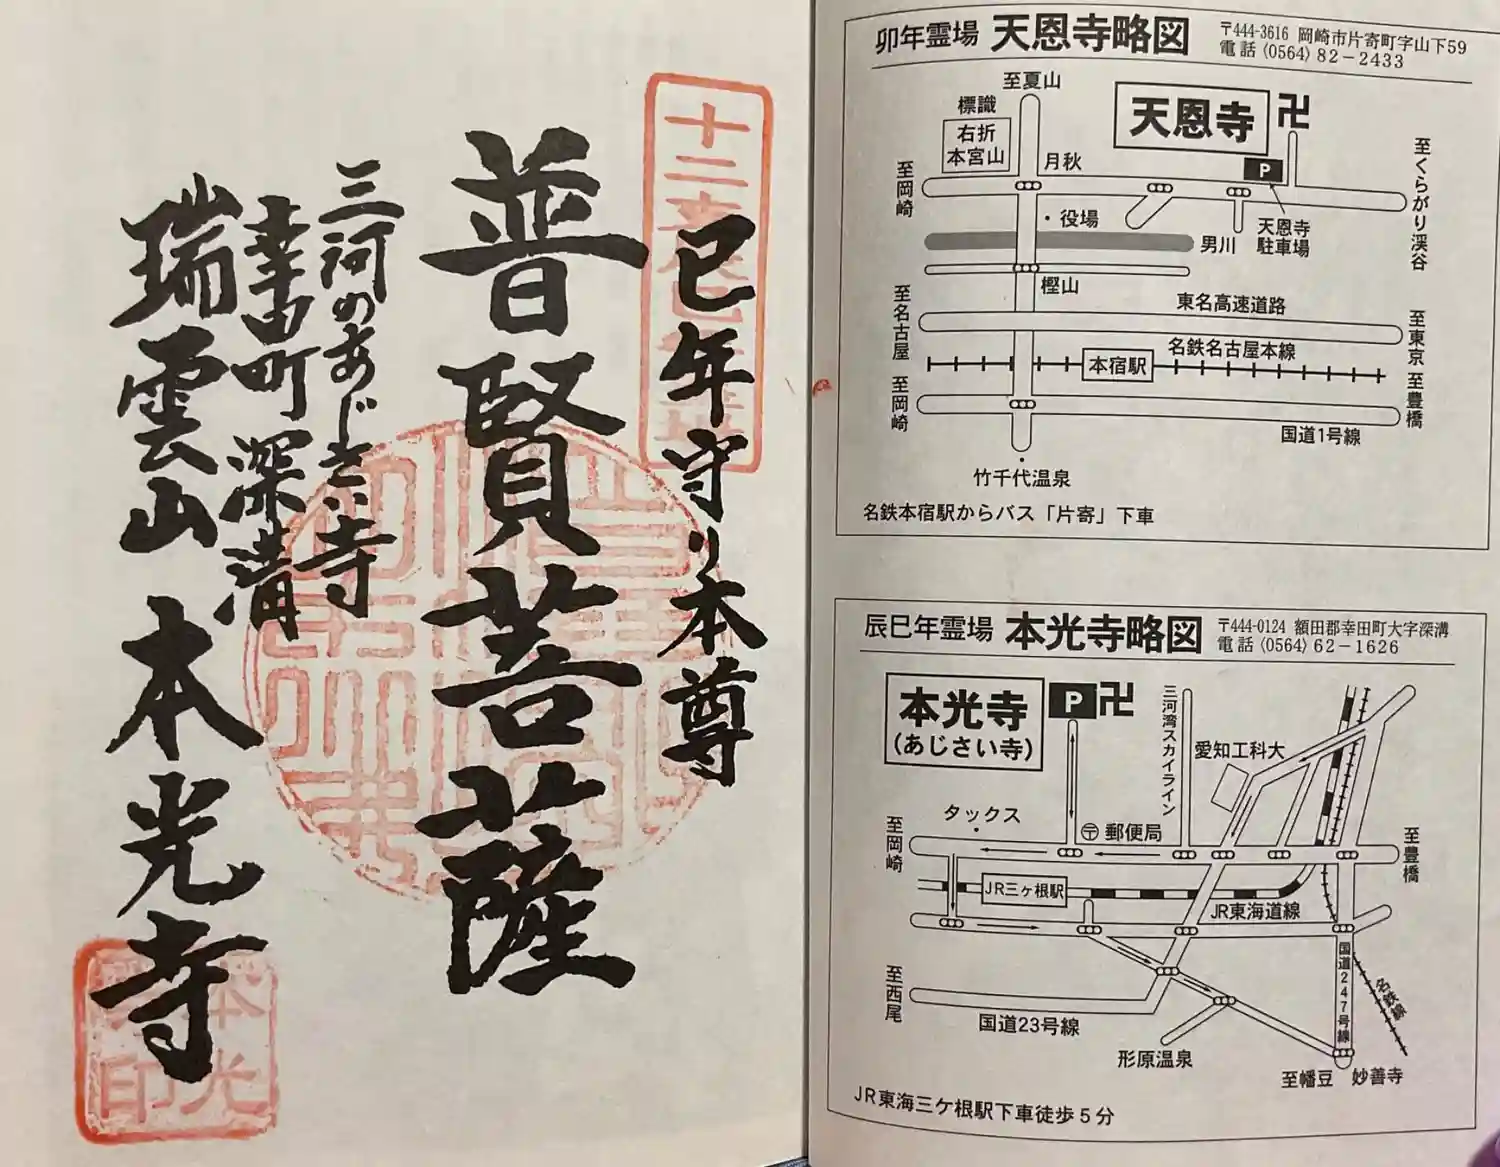 十二支辰巳年霊場
巳年守り本尊
普賢菩薩
三河のあじさい寺
幸田町深溝
瑞雲山本光寺
本光
寺印
卯年霊場 天恩寺略図 〒444-3616 岡崎市片寄町字山下59
電話(0564)82-2433
至夏山
標識
右折
本宮山
天恩寺
卍
P
月秋
至岡崎
至くらがり渓谷
・役場
天恩寺
駐車場
男川
樫山
至名古屋
東名高速道路
至東京
名鉄名古屋本線
本宿駅
至岡崎
至豊橋
国道1号線
竹千代温泉
名鉄本宿駅からバス「片寄」下車
辰巳年霊場 本光寺略図 〒444-0124 額田郡幸田町大字深溝
電話(0564)62-1626
本光寺
(あじさい寺)
P卍
三河湾スカイライン
愛知工科大
タックス
〒郵便局
至岡崎
至豊橋
JR三ヶ根駅
JR東海道線
国道247号線
名鉄線
至西尾
国道23号線
形原温泉
至幡豆
妙善寺
JR東海三ケ根駅下車徒歩5分